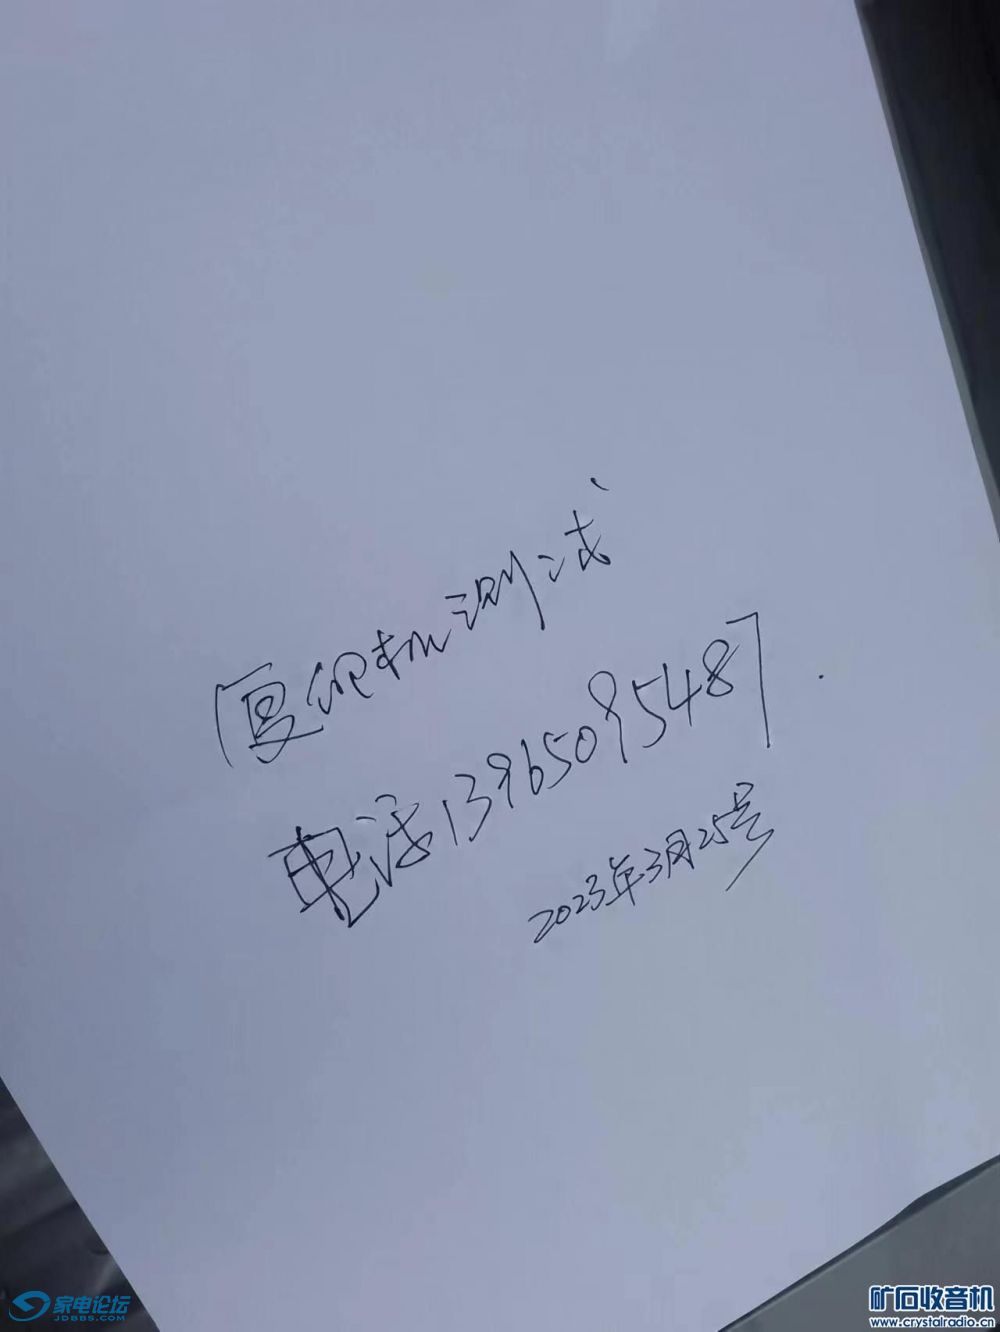 复印机测试
电话13965095487.
2023年3月25号
家电论坛
JDBBS.COM
矿石收音机
www.crystalradio.cn